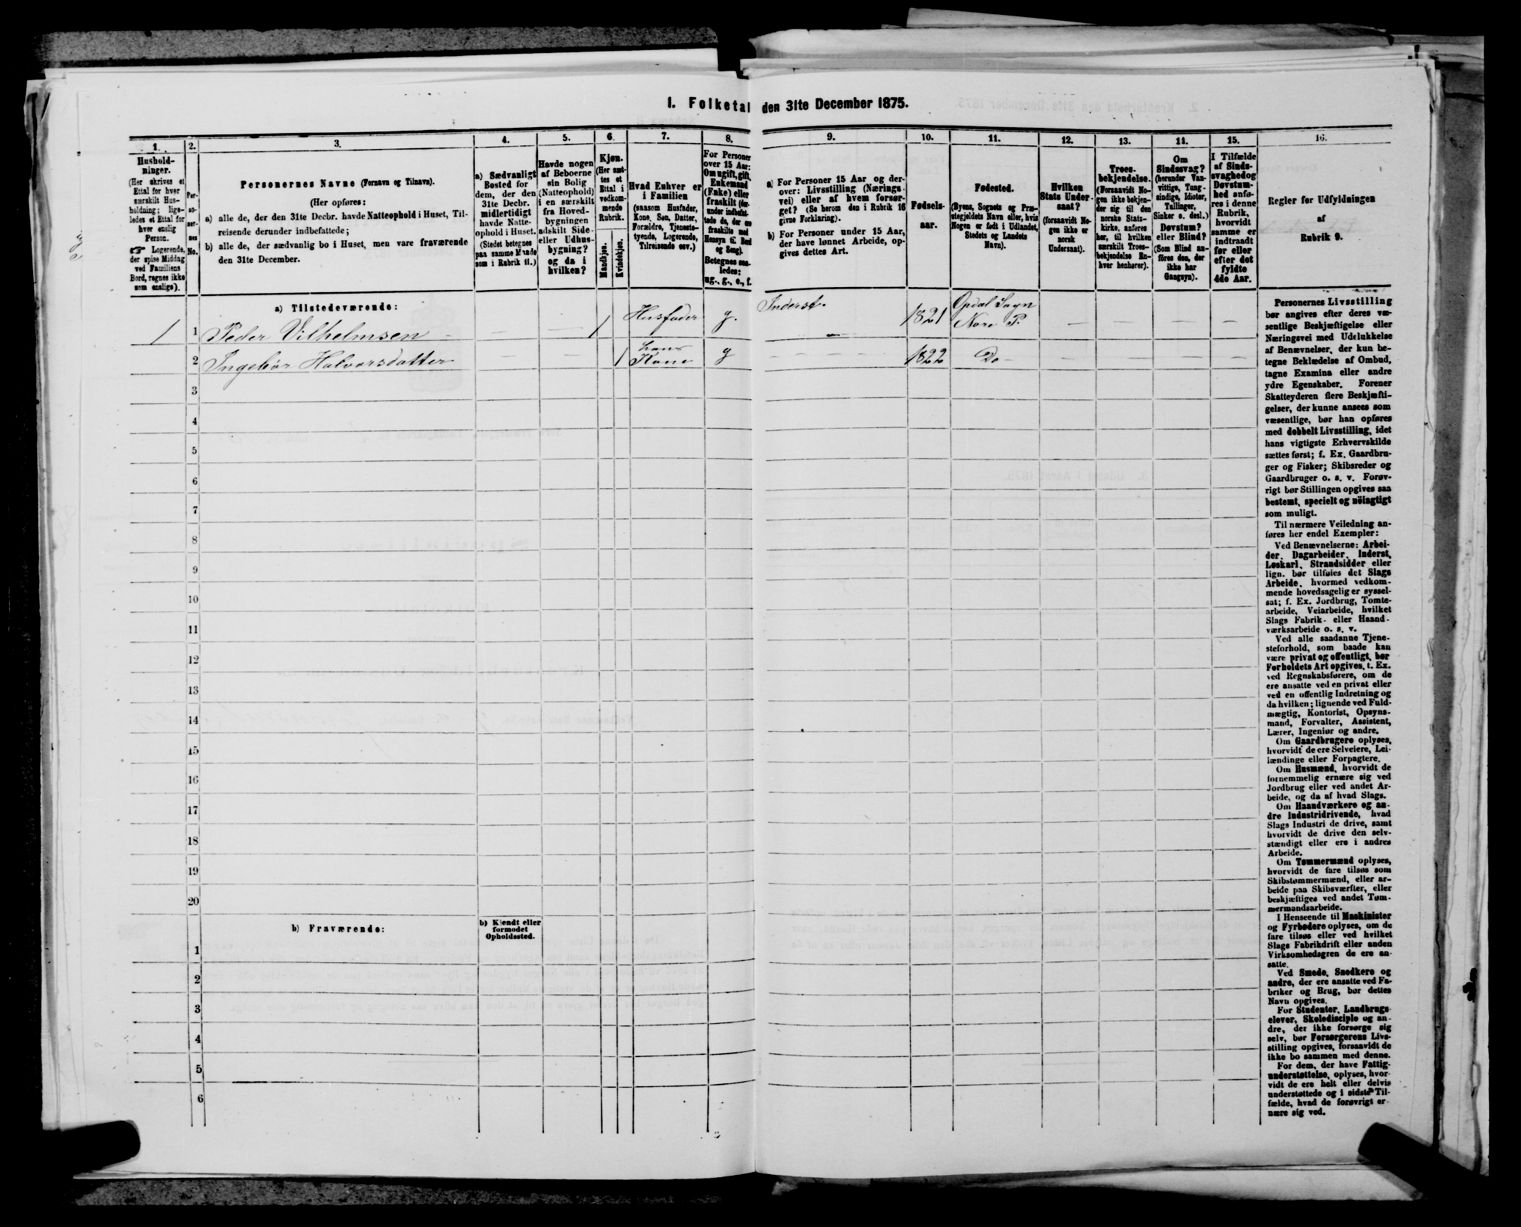 I. Folketal den 31te December 1875.
1.
Hushold-
ninger.
(Her skrives et
Ettal for hver
særskilt Hus-
holdning; lige-
ledes et Ettal for
hver enslig
Person.
☞ Logerende,
der spise Middag
ved Familiens
Bord, regnes ikke
som enslige).
2.
Per-
so-
ner-
nes
No.
3.
Personernes Navne (Fornavn og Tilnavn).
(Her opføres:
a) alle de, der den 31te Decbr. havde Natteophold i Huset, Til-
reisende derunder indbefattede;
b) alle de, der sædvanlig bo i Huset, men vare fraværende
den 31te December.
4.
a) Sædvanligt
Bosted for
dem, der den
31te Decbr.
midlertidigt
havde Natte-
ophold i Huset.
(Stedet betegnes
paa samme Maade
som i Rubrik 11.)
5.
Havde nogen
af Beboerne
sin Bolig
(Natteophold)
i en særskilt
fra Hoved-
bygningen
adskilt Side-
eller Udhus-
bygning?
og da i
hvilken?
6.
Kjøn.
(Her sæt-
tes et
Ettal i
vedkom-
mende
Rubrik.
Mandkjøn.
Kvindekjøn.
7.
Hvad Enhver er
i Familien
(saasom Husfader,
Kone, Søn, Datter,
Forældre, Tjeneste-
tyende, Logerende,
Tilreisende osv.)
8.
For Personer
over 15 Aar:
Om ugift, gift,
Enkemand
(Enke) eller
fraskilt (der-
under indbefat-
tede de, der ere
fraskilte med
Hensyn til Bord
og Seng).
Betegnes saa-
ledes:
ug., g., e., f.
9.
a) For Personer 15 Aar og der-
over: Livsstilling (Nærings-
vei) eller af hvem forsør-
get? (Se herom den i Rubrik 16
givne Forklaring).
b) For Personer under 15 Aar,
der have lønnet Arbeide, op-
gives dettes Art.
10.
Fødsels-
aar.
11.
Fødested.
(Byens, Sognets og Præ-
stegjeldets Navn eller, hvis
Nogen er født i Udlandet,
Stedets og Landets
Navn).
12.
Hvilken
Stats Under-
saat?
(forsaavidt No-
gen ikke er
norsk
Undersaat).
13.
Troes-
bekjendelse.
(Forsaavidt No-
gen ikke bekjen-
der sig til den
norske Stats-
kirke, anføres
her, til hvilken
særskilt Troes-
bekjendelse En-
hver henhører).
14.
Om
Sindssvag?
(herunder Van-
vittige, Tung-
sindige, Idioter,
Tullinger,
Sinker o. desl.)
Døvstum?
eller Blind?
(Som Blind an-
føres den, der
ikke har
Gangsyn).
15.
I Tilfælde
af Sinds-
svaghed og
Døvstum-
hed anfø-
res i denne
Rubrik,
hvorvidt
samme er
indtraadt
før eller
efter det
fyldte
4de Aar.
16.
Regler for Udfyldningen
af
Rubrik 9.
a) Tilstedeværende:
1 1 Peder Vilhelmsen – – – 1 Husfader g. Inderst 1821 Opdal Sogn Nore P. – – – –
2 Ingebor Halvorsdatter 1 hans Kone g 1822 Do – – –
3
4
5
6
7
8
9
10
11
12
13
14
15
16
17
18
19
20
b) Fraværende:
b) Kjendt eller
formodet
Opholdssted.
1
2
3
4
5
6
Personernes Livsstilling
bør angives efter deres væ-
sentlige Beskjæftigelse eller
Næringsvei med Udelukkelse
af Benævnelser, der kun be-
tegne Beklædelse af Ombud,
tagne Examina eller andre
ydre Egenskaber. Forener
Skatteyderen flere Beskjæfti-
gelser, der kunne ansees som
væsentlige, bør han opføres
med dobbelt Livsstilling, idet
hans vigtigste Erhvervskilde
sættes først; f. Ex. Gaardbru-
ger og Fisker; Skibsreder og
Gaardbruger o. s. v. Forøv-
rigt bør Stillingen opgives saa
bestemt, specielt og nöiagtigt
som muligt.
Til nærmere Veiledning an-
føres her endel Exempler:
Ved Benævnelserne: Arbei-
der, Dagarbeider, Inderst,
Løskarl, Strandsidder eller
lign. bør tilføies det Slags
Arbeide, hvormed vedkom-
mende hovedsagelig er syssel-
sat; f. Ex. Jordbrug, Tomte-
arbeide, Veiarbeide, hvilket
Slags Fabrik- eller Haand-
værksarbeide o. s. v.
Ved alle saadanne Tjene-
steforhold, som baade kan
være privat og offentligt, bør
Forholdets Art opgives, t. Ex.
ved Regnskabsførere, om de
ere ansatte ved en privat eller
ved en offentlig Indretning og
da hvilken; lignende ved Fuld-
mægtig, Kontorist, Opsyns-
mand, Forvalter, Assistent,
Lærer, Ingeniør og andre.
Om Gaardbrugere oplyses,
hvorvidt de ere Selveiere, Lei-
lændinge eller Forpagtere.
Om Husmænd, hvorvidt de
fornemmelig ernære sig ved
Jordbrug eller ved andet Ar-
beide, og da af hvad Slags.
Om Haandværkere og an-
dre Industridrivende, hvad
Slags Industri de drive, samt
hvorvidt de drive den selv-
stændigt eller ere i andres
Arbeide.
Om Tømmermænd oplyses,
hvorvidt de fare tilsøs som
Skibstømmermænd, eller ar-
beide paa Skibsværfter, eller
beskjæftiges ved andet Tøm-
mermandsarbeide.
I Henseende til Maskinister
og Fyrbødere oplyses, om de
fare tilsøs eller ved hvilket
Slags Fabrikdrift eller anden
Virksomhedsgren de ere an-
satte.
Ved Smede, Snedkere og
andre, der ere ansatte ved Fa-
briker og Brug, bør dettes
Navn opgives.
For Studenter, Landbrugs-
elever, Skoledisciple og an-
dre, der ikke forsørge sig
selv, bør Forsørgerens Livs-
stilling opgives, forsaavidt de
ikke bo sammen med denne.
For dem, der have Fattig-
understøttelse, oplyses, hvor-
vidt de ere helt eller delvis
understøttede og i sidste Til-
fælde, hvad de forøvrigt er-
nære sig ved.